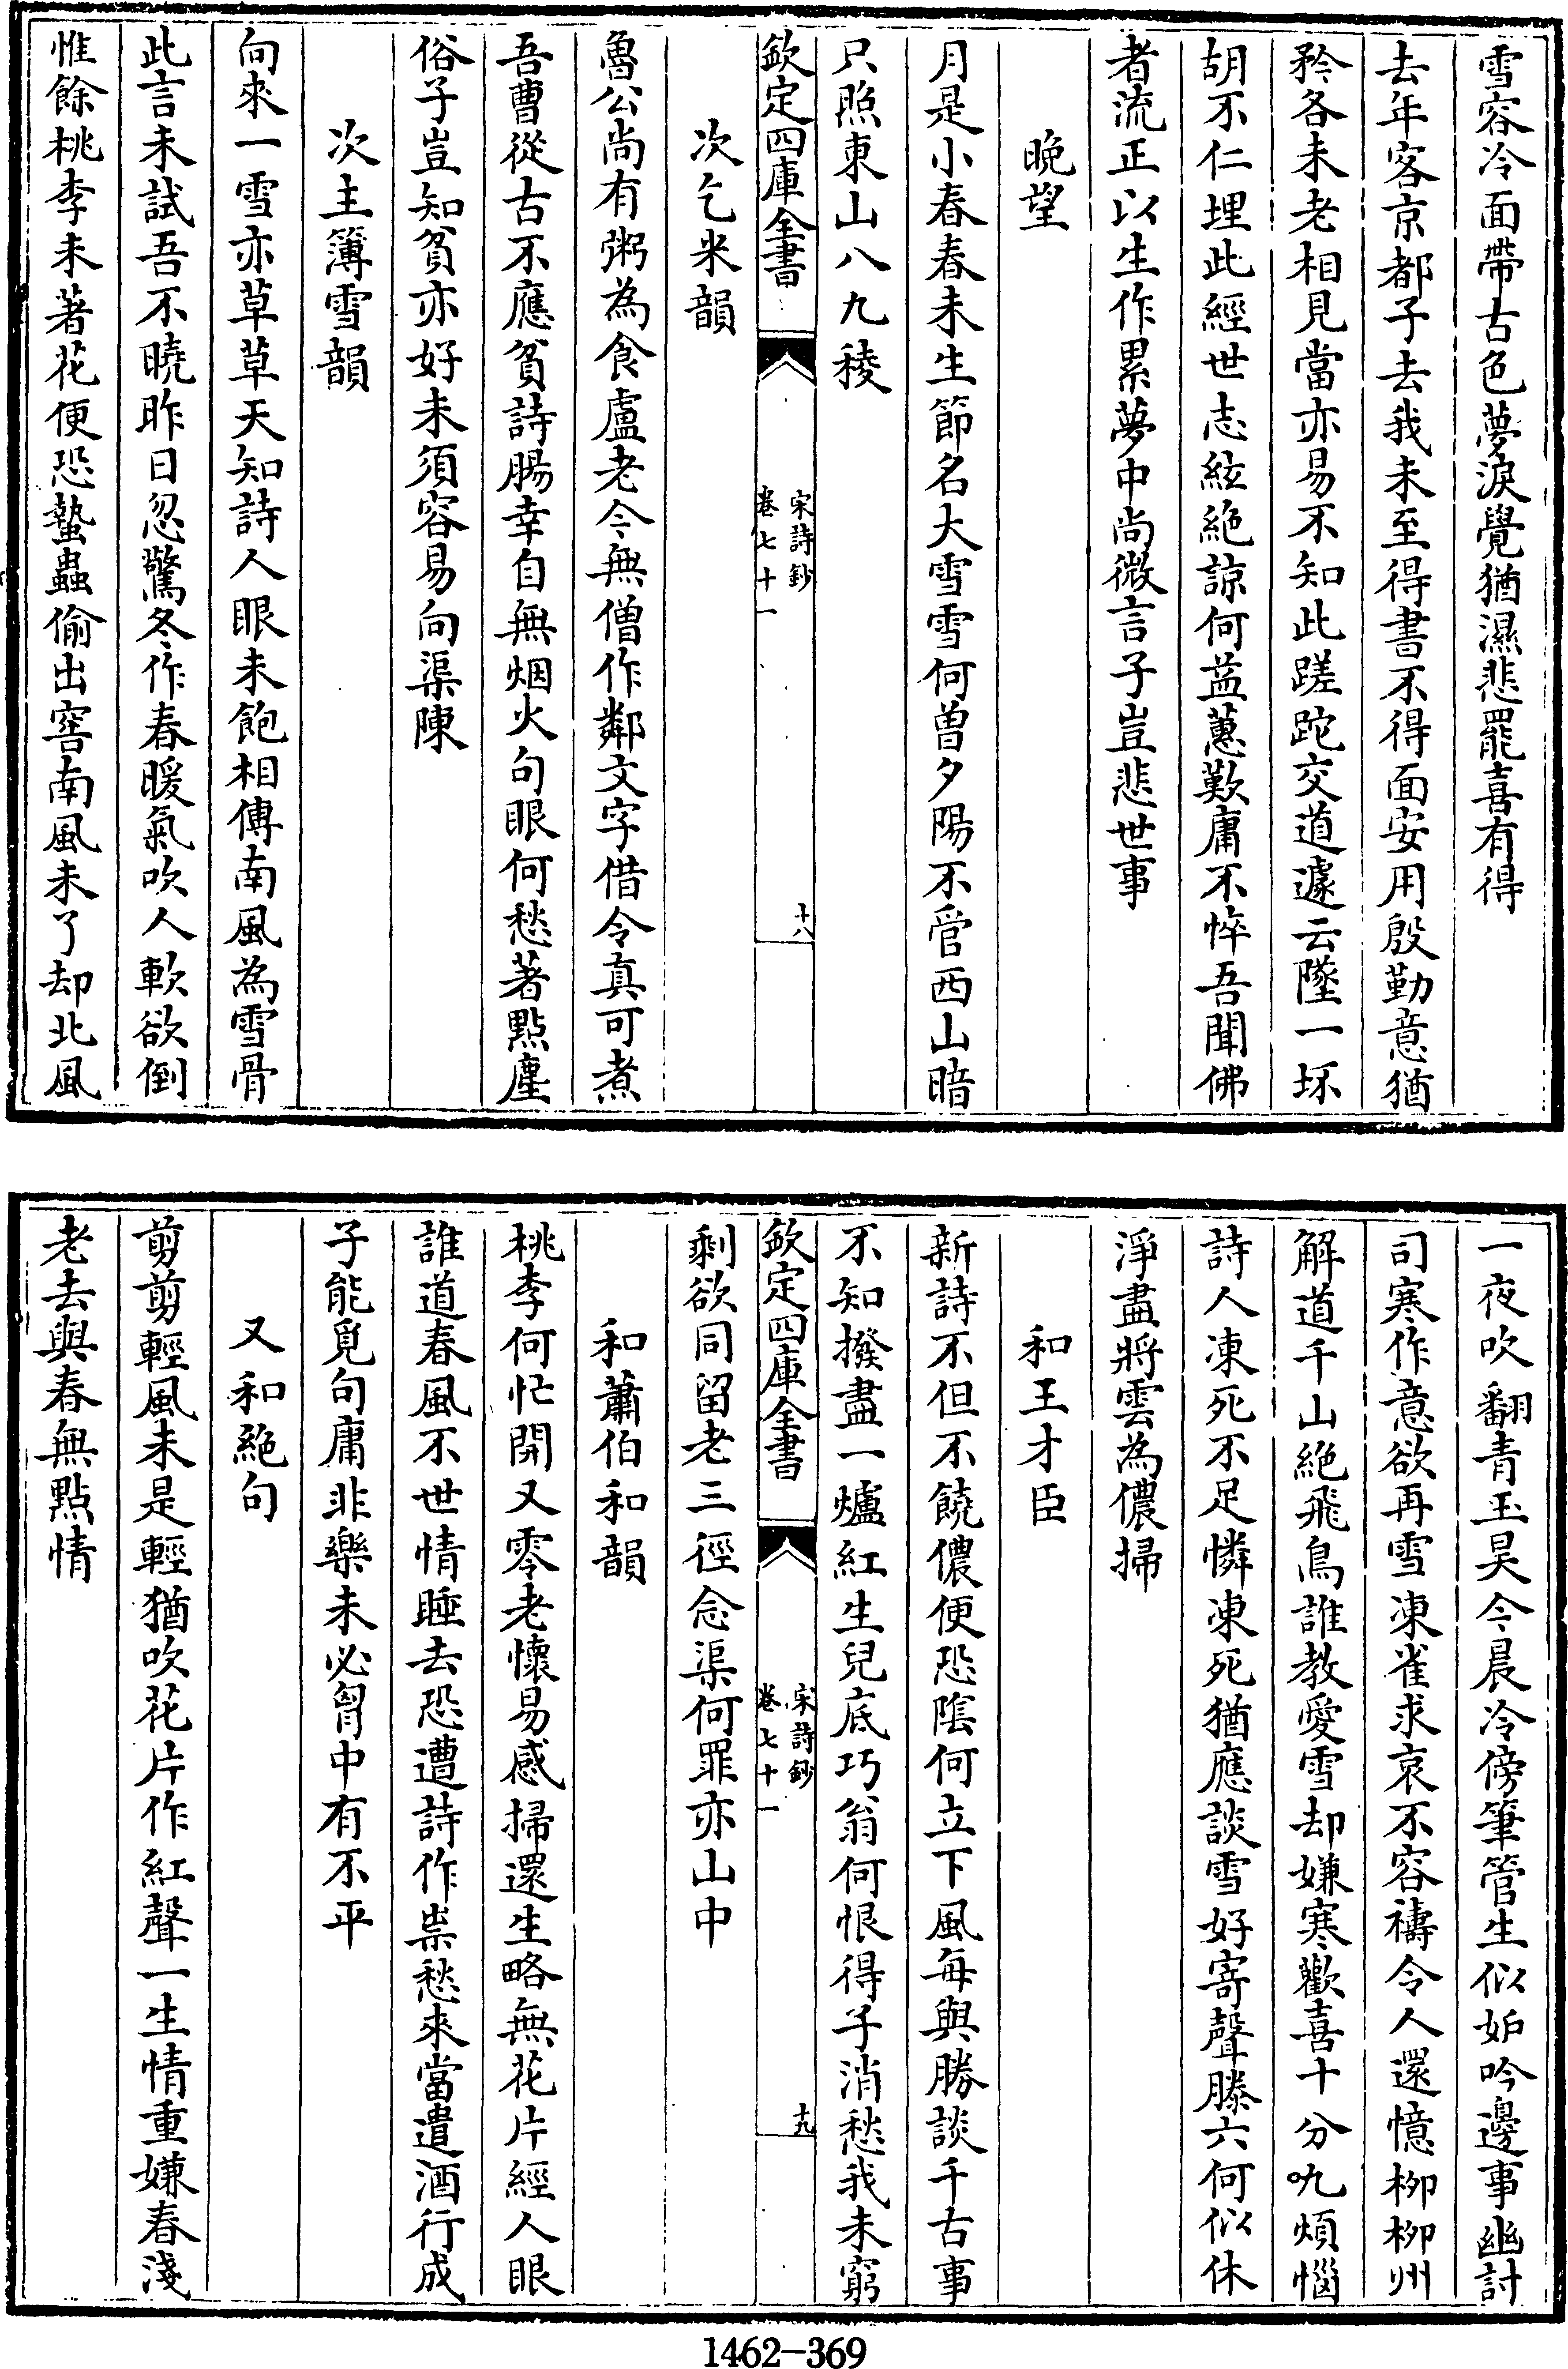 雪容冷面帶古色夢淚覺猶濕悲罷喜有得
去年客京都子去我未至得書不得面安用殷勤意猶
矜各未老相見當亦易不知此蹉跎交道遽云墜一抔
胡不仁埋此經世志絃絶諒何益蕙歎庸不悴吾聞佛
者流正以生作累夢中尚微言子豈悲世事
晚望
月是小春春未生節名大雪雪何曾夕陽不管西山暗
只照東山八九稜
欽定四庫全書
宋詩鈔
卷七十一
十八
次乞米韻
魯公尚有粥為食盧老今無僧作鄰文字借令真可煮
吾曹從古不應貧詩腸幸自無烟火句眼何愁著點塵
俗子豈知貧亦好未須容易向渠陳
次主簿雪韻
向來一雪亦草草天知詩人眼未飽相傳南風為雪骨
此言未試吾不曉昨日忽驚冬作春暖氣吹人軟欲倒
惟餘桃李未著花便恐蟄蟲偷出窖南風未了却北風
一夜吹翻青玉昊今晨冷傍筆管生似妬吟邊事幽討
司寒作意欲再雪凍雀求哀不容禱令人還憶栁栁州
解道千山絶飛鳥誰教愛雪却嫌寒歡喜十分九煩惱
詩人凍死不足憐凍死猶應談雪好寄聲滕六何似休
淨盡將雲為儂掃
和王才臣
新詩不但不饒儂便恐陰何立下風每與勝談千古事
不知撥盡一爐紅生兒底巧翁何恨得子消愁我未窮
欽定四庫全書
宋詩鈔
卷七十一
十九
剩欲同留老三徑念渠何罪亦山中
和蕭伯和韻
桃李何忙開又零老懷易感掃還生略無花片經人眼
誰道春風不世情睡去恐遭詩作祟愁來當遣酒行成
子能覓句庸非樂未必胷中有不平
又和絶句
剪剪輕風未是輕猶吹花片作紅聲一生情重嫌春淺
老去與春無點情
1462-369